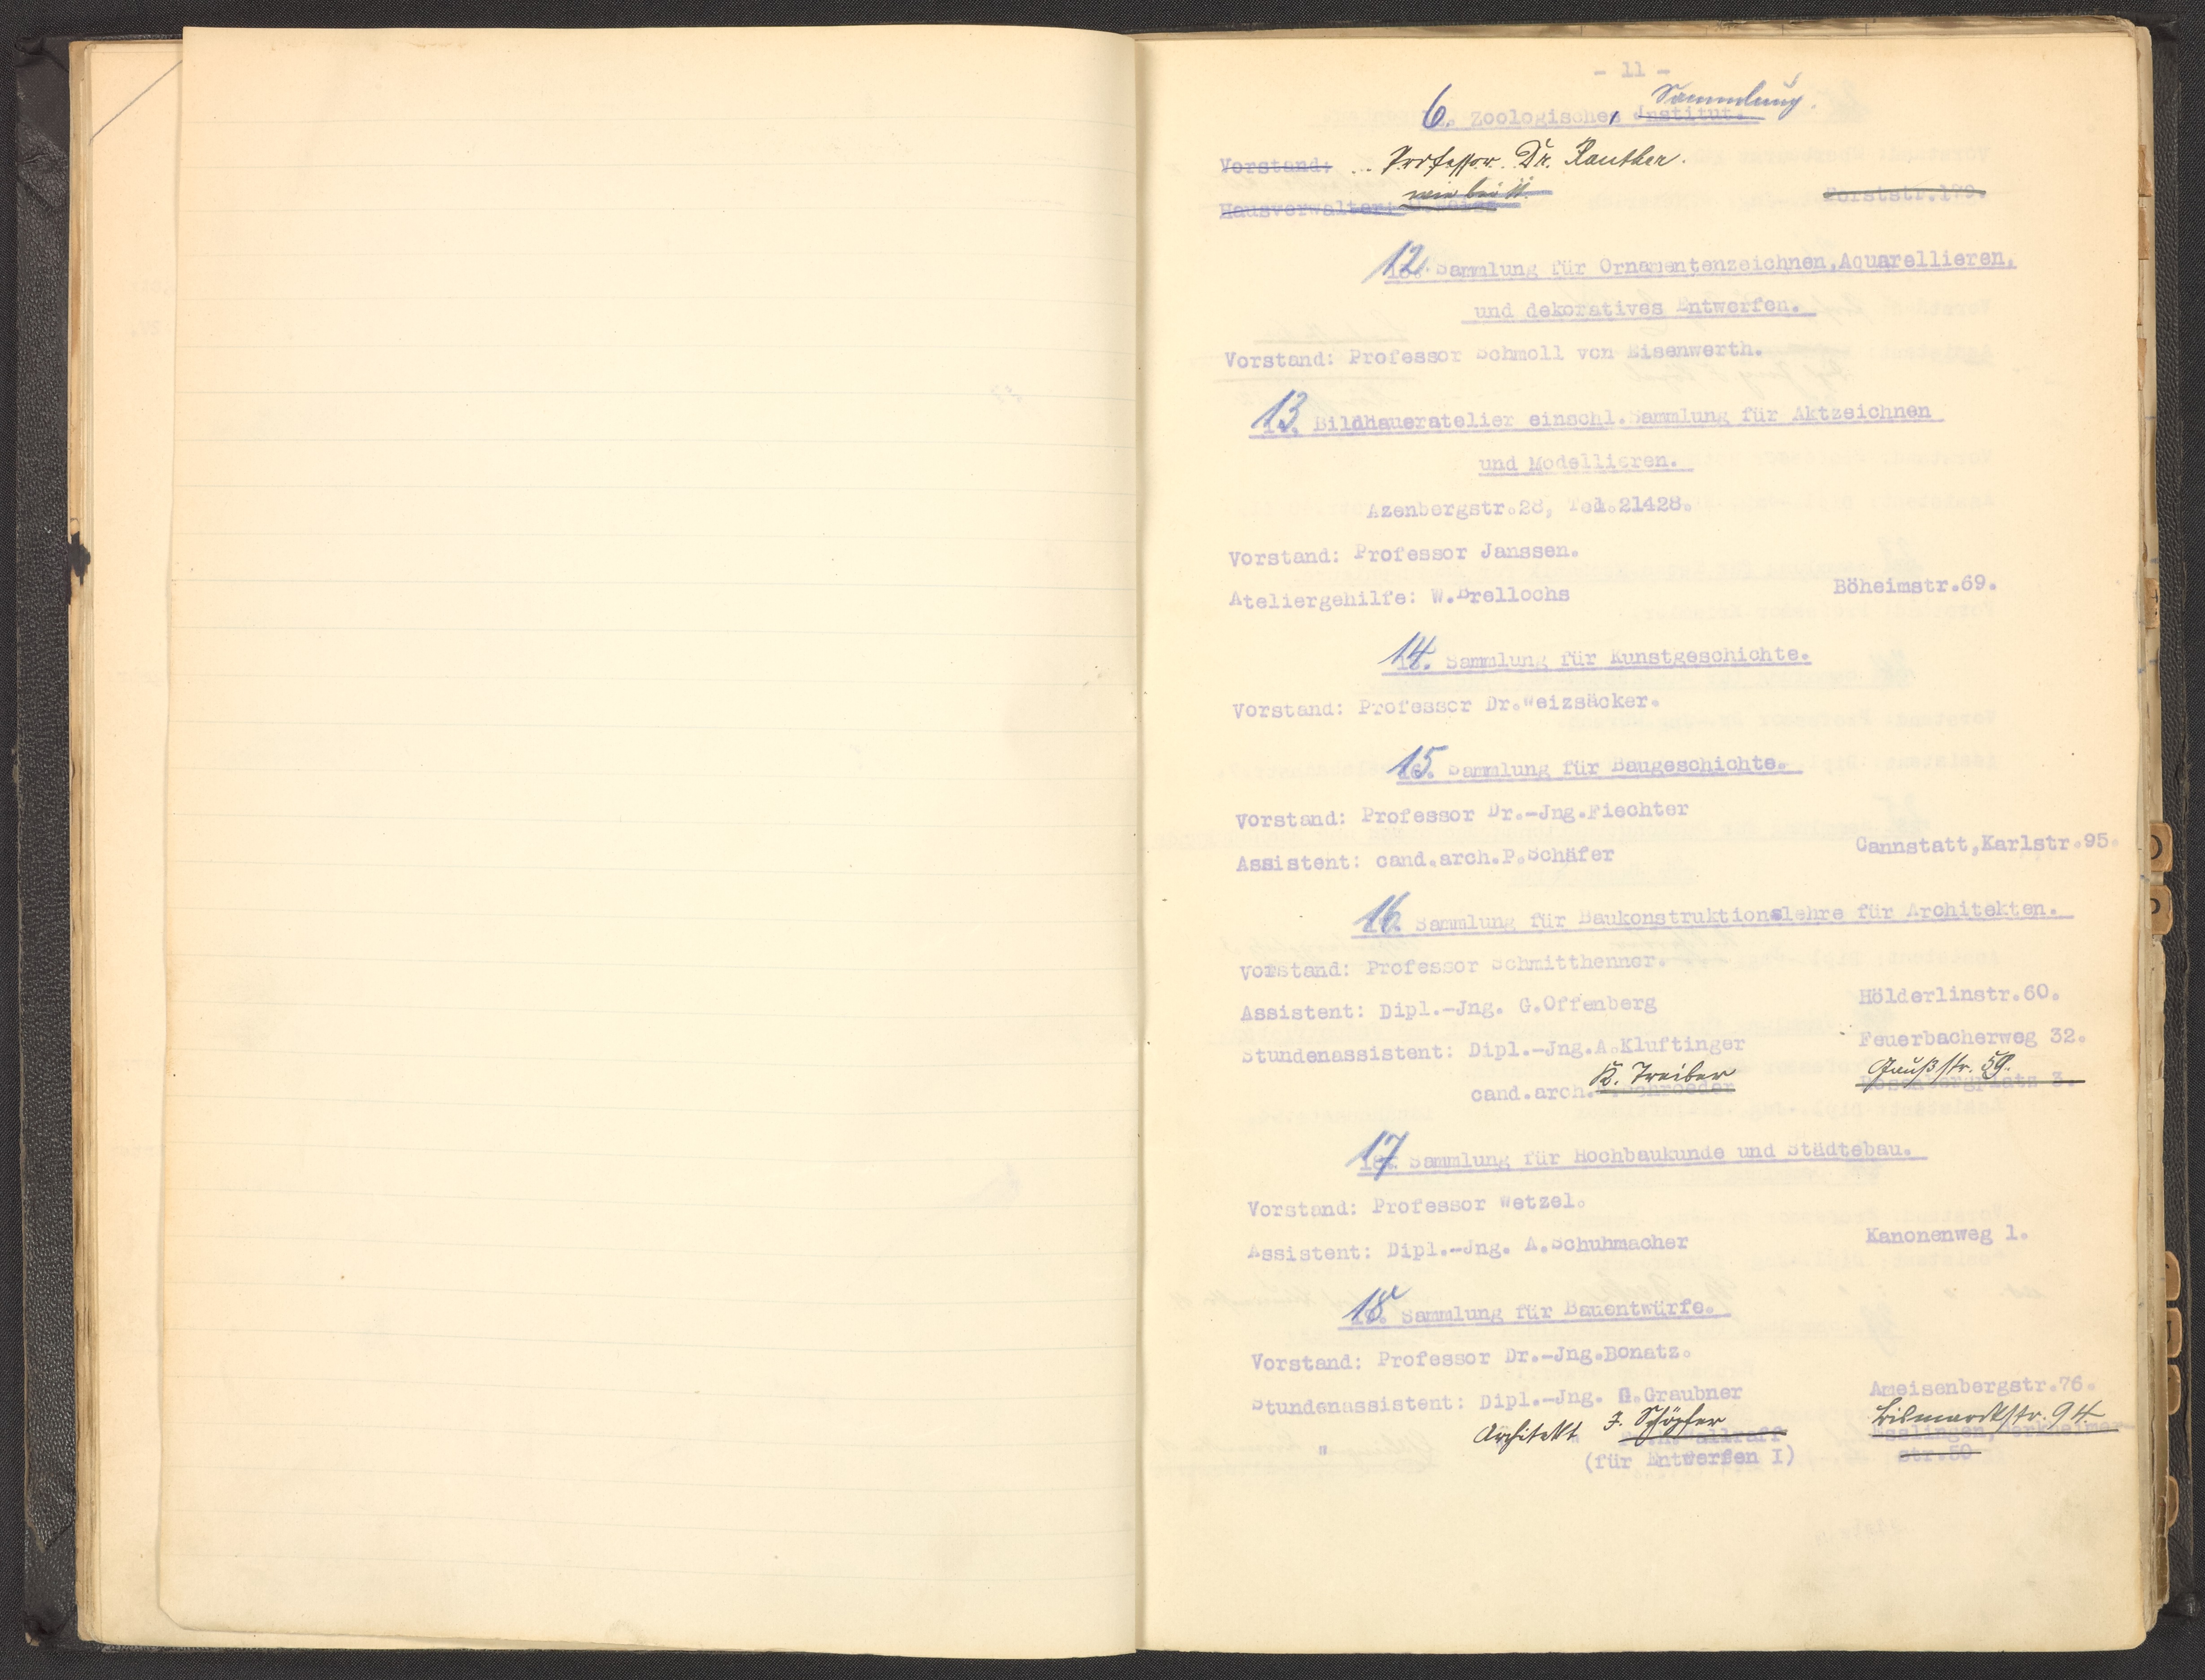 - 11 -
Sammlung.
6. Zoologisches Institut.
Vorstand: Professor Dr. Rauther.
wie bei 11.
Hausverwalter: Forststr.179.
12. Sammlung für Ornamentenzeichnen,Aquarellieren,
und dekoratives Entwerfen.
Vorstand: Professor Schmoll von Eisenwerth.
13. Bildhaueratelier einschl.Sammlung für Aktzeichnen
und Modellieren.
Azenbergstr.28, Tel.21428.
Vorstand: Professor Janssen.
Ateliergehilfe: W.Brellochs Böheimstr.69.
14. Sammlung für Kunstgeschichte.
Vorstand: Professor Dr.Weizsäcker.
15. Sammlung für Baugeschichte.
Vorstand: Professor Dr.-Jng.Fiechter
Assistent: cand.arch.P.Schäfer Cannstatt,Karlstr.95.
16. Sammlung für Baukonstruktionslehre für Architekten.
Vorstand: Professor Schmitthenner.
Assistent: Dipl.-Jng. G.Offenberg Hölderlinstr.60.
Stundenassistent: Dipl.-Jng.A.Kluftinger Feuerbacherweg 32.
K. Treiber Gaußstr. 59.
cand.arch. Schroeder 3.
17. Sammlung für Hochbaukunde und Städtebau.
Vorstand: Professor Wetzel.
Assistent: Dipl.-Jng. A.Schuhmacher Kanonenweg 1.
18. Sammlung für Bauentwürfe.
Vorstand: Professor Dr.-Jng.Bonatz.
Stundenassistent: Dipl.-Jng. G.Graubner Ameisenbergstr.76.
Architekt J. Schöpfer Bismarckstr. 94
" Wallraff Esslingen,
(für Entwerfen I) str.50